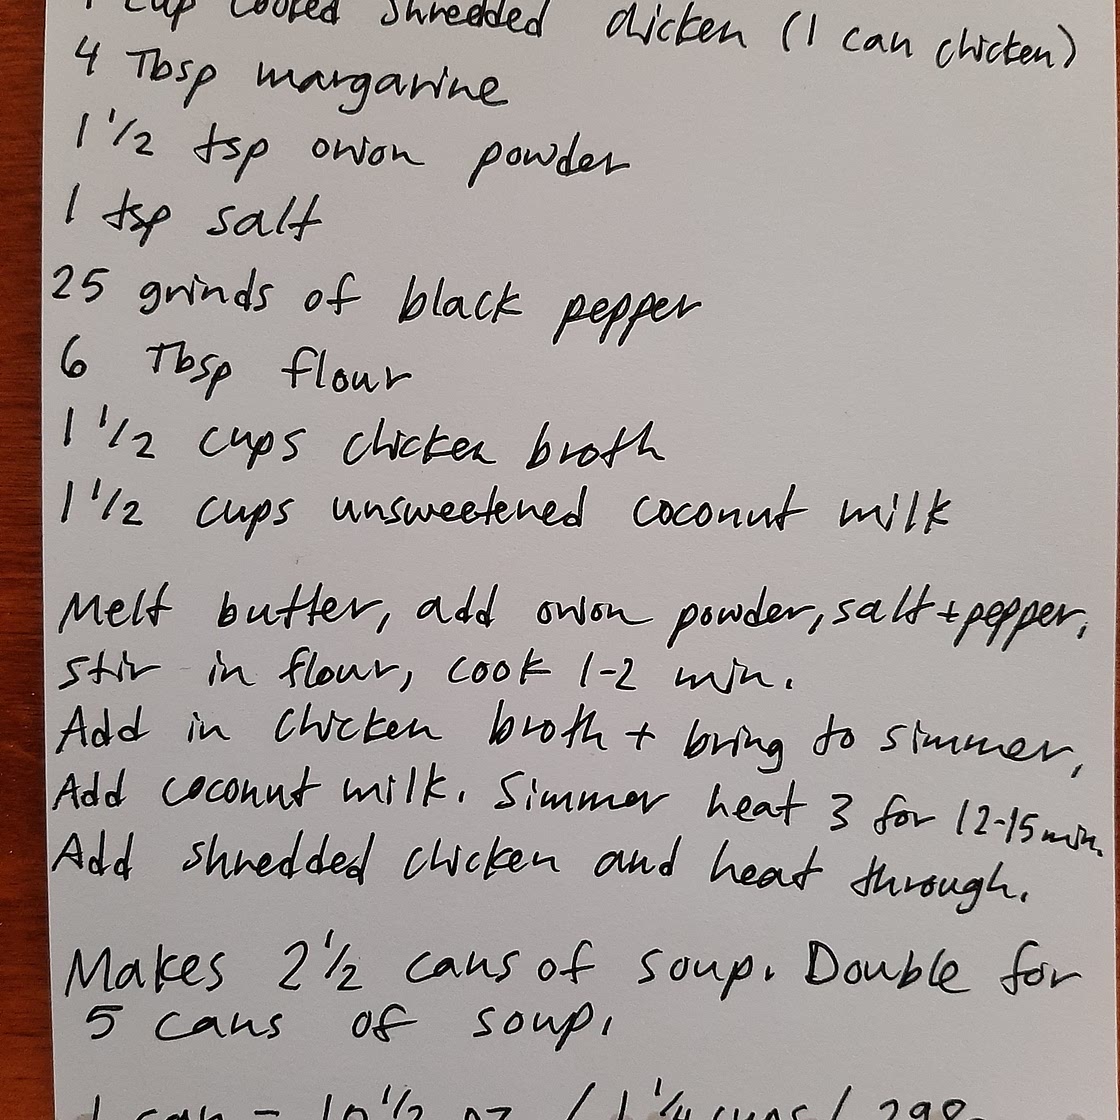 1 cup cooked shredded chicken (1 can chicken)
4 Tbsp margarine
1 1/2 tsp onion powder
1 tsp salt
25 grinds of black pepper
6 Tbsp flour
1 1/2 cups chicken broth
1 1/2 cups unsweetened coconut milk
Melt butter, add onion powder, salt + pepper,
stir in flour, cook 1-2 min.
Add in chicken broth + bring to simmer,
Add coconut milk. Simmer heat 3 for 12-15 min.
Add shredded chicken and heat through.
Makes 2 1/2 cans of soup. Double for
5 cans of soup.
1 can = 10 1/2 oz / 1 1/4 cups / 298